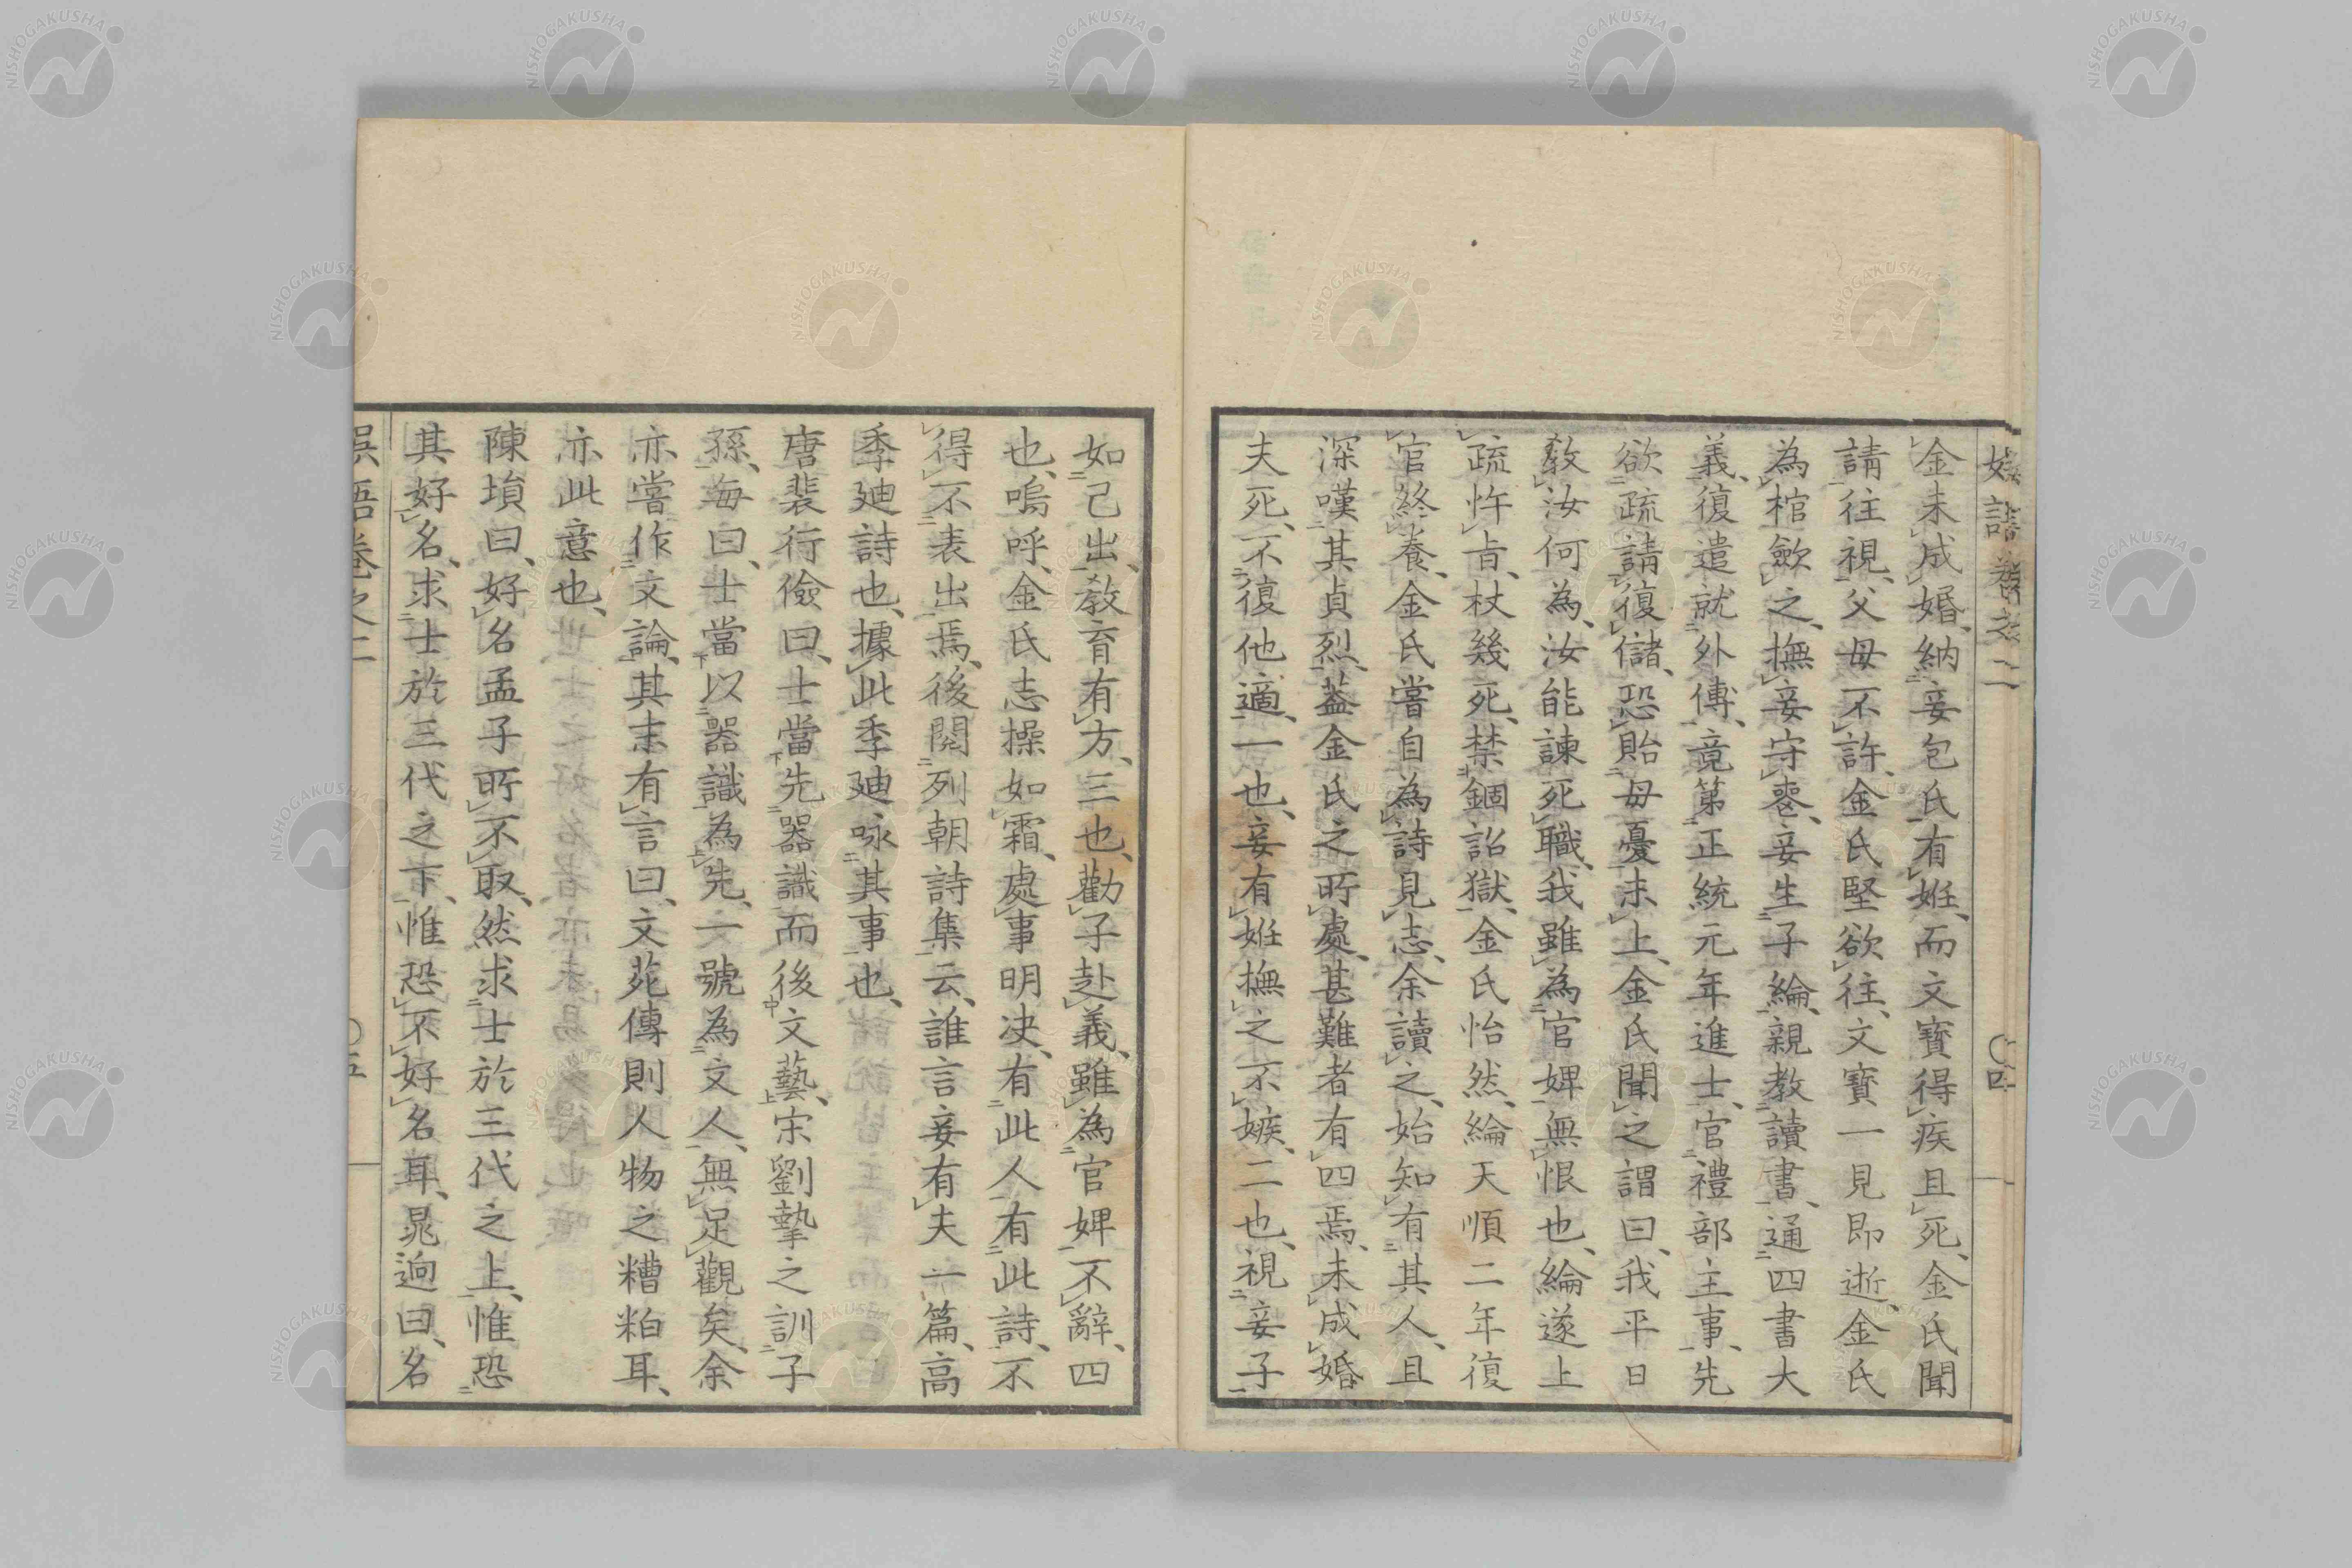 金未成婚、納妾包氏、有姙、而文寳得疾且死、金氏聞
請往視、父母不許、金氏堅欲往、文寳一見即逝、金氏
為棺歛之、撫妾守喪、妾生子綸、親教讀書、通四書大
義、復遣就外傅、竟第正統元年進士、官禮部主事、先
欲疏請復儲、恐貽母憂未上、金氏聞之謂曰、我平日
教汝何為、汝能諫死職、我雖為官婢無恨也、綸遂上
疏忤旨、杖幾死、禁錮詔獄、金氏怡然、綸天順二年復
官終養、金氏嘗自為詩見志、余讀之、始知有其人、且
深嘆其貞烈、葢金氏之所處、甚難者有四焉、未成婚
夫死、不復他適、一也、妾有姙撫之不嫉、二也、視妾子
如己出、教育有方、三也、勸子赴義、雖為官婢不辭、四
也、嗚呼、金氏志操如霜、處事明决、有此人有此詩、不
得不表出焉、後閲列朝詩集云、誰言妾有夫一篇、高
季廸詩也、據此季廸咏其事也、
唐裴行儉曰、士當先器識而後文藝、宋劉摯之訓子
孫、每曰、士當以器識為先、一號為文人、無足觀矣、余
亦嘗作文論、其末有言曰、文苑傳則人物之糟粕耳、
亦此意也、
陳塤曰、好名孟子所不取、然求士於三代之上、惟恐
其好名、求士於三代之下、惟恐不好名耳、晁逈曰、名